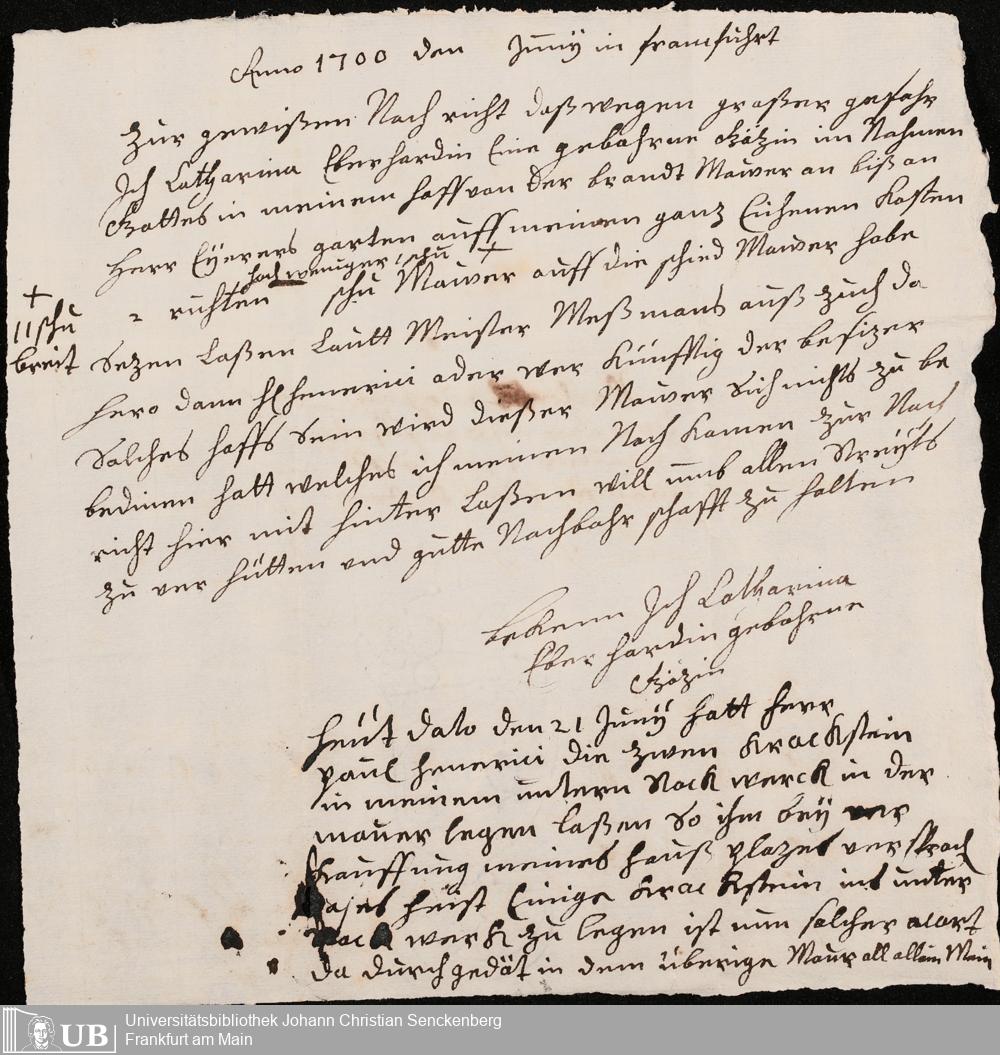 Anno 1700 den Juny in franckfuhrt
Zur gewißen Nach richt daß wegen großer gefahr
Ich Catharina Eberhardin Eine gebohrne Götzin im Nahmen
Gottes in meinem hoff von der brandt Mauer an biß an
Herr Eyerers garten auff meinen ganz Eichenen Kosten
hoch weniger 1 schu +
2 ruhten schu Mauer auff die schied Mauer habe
+
11 schu
breit
Sezen laßen lautt Meister Meßmans auß zuch da
hero dann H henerici oder wer Künfftig der besizer
Solches hoffs Sein wird dießer Mauer Sich nichts zu be
bedinen hatt welches ich meinen Nach Komen zur Nach
richt hier mit hinter laßen will umb allen Streyts
zu ver hütten und gutte Nachbahr schafft zu halten
bekenn Ich Catharina
Eber hardin gebohrne
Götzin
heüt dato den 21 Juny hatt herr
paul henerici die zwen Krackstein
in meinem untern Stock werck in der
mauer legen laßen So ihm bey ver
Kauffung meines hauß plazes versprach
heist Einige Krackstein ins unter
Stock werk zu legen ist nun solcher
da durch gedät in dem überige Maur all allein Mein
Universitätsbibliothek Johann Christian Senckenberg
Frankfurt am Main
UB